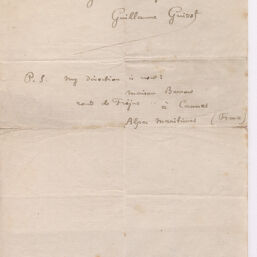 Guillaume Guizot
P.S. My direction is now:
maison Barron
route de Fréjus à Cannes
Alpes Maritimes (France)